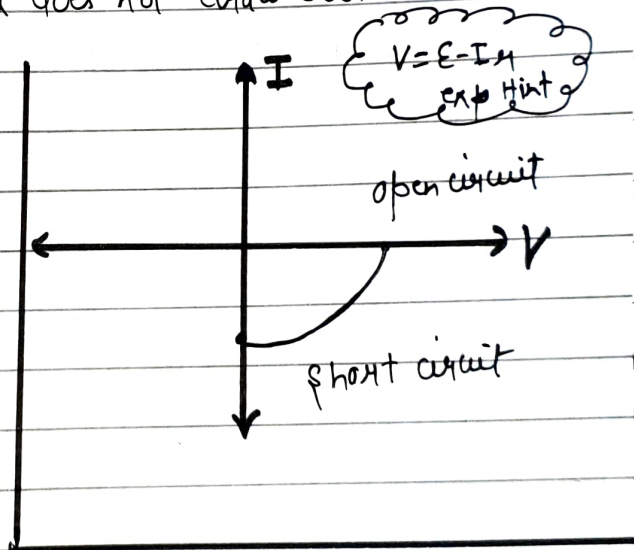 does not
I
V=ε-Ir
exp Hint
open circuit
V
short circuit